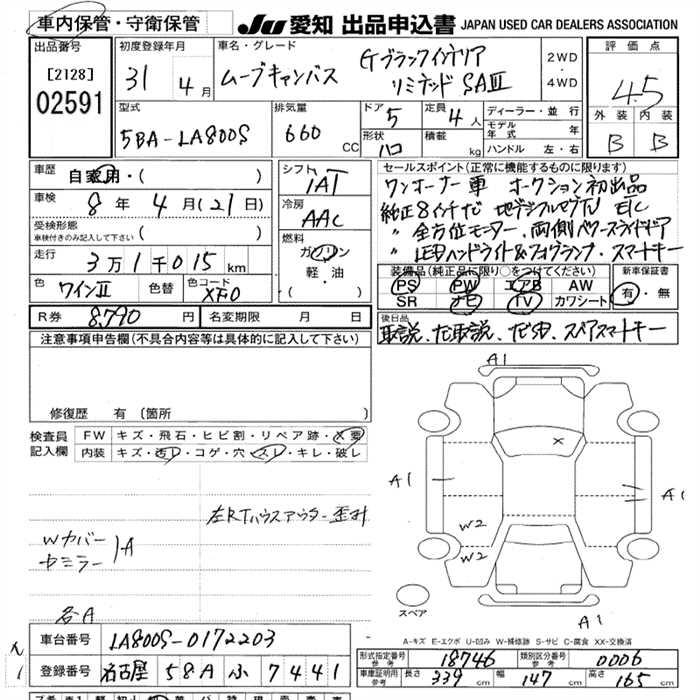 車内保管・守衛保管 JU 愛知 出品申込書 JAPAN USED CAR DEALERS ASSOCIATION
出品番号 初度登録年月 車名・グレード 評価点
[2128] 02591 31 4月 ムーブキャンバス Gブラックインテリア リミテッド SAⅢ 2WD・4WD 4.5
型式 排気量 ドア 5 定員 4人 ディーラー・並行 外装 内装
5BA-LA800S 660 CC 形状 ハコ 積載 kg モデル年式 年 B B
ハンドル 左・右
車歴 自家用・( ) シフト IAT セールスポイント(正常に機能するものに限ります)
車検 8年 4月(21日) 冷房 AAC ワンオーナー車 オークション初出品
受検形態 車検付きのみ記入して下さい ( ) 燃料 純正8インチナビ 地デジフルセグTV ETC
走行 3万1千015km ガソリン 〃 全方位モニター、両側パワースライドドア
軽・油 〃 LEDヘッドライト&フォグランプ、スマートキー
色 ワインⅡ 色替 色コード XFO ( )
装備品(純正品に限り○をつけてください) 新車保証書
PS PW エアB AW 有・無
SR ナビ TV カワシート
R券 8,790円 名変期限 月 日
後日品
取説、ナビ取説、スペアスマートキー
注意事項申告欄(不具合内容等は具体的に記入して下さい)
修復歴 有(箇所 )
検査員記入欄 FW キズ・飛石・ヒビ割・リペア跡・X要
内装 キズ・汚レ・コゲ・穴・スレ・キレ・破レ
左RTハウスアウター歪み
Wカバー
ドミラー
A
各A
A1
A1
A1
X
W2
W2
A1
スペア
A-キズ E-エクボ U-凹み W-補修跡 S-サビ C-腐食 XX-交換済
車台番号 LA800S-0172203
登録番号 名古屋 58A ふ 7441
形式指定番号 参考 18746 類別区分番号 参考 0006
車庫証明用 参考 長さ 339cm 幅 147cm 高さ 165cm